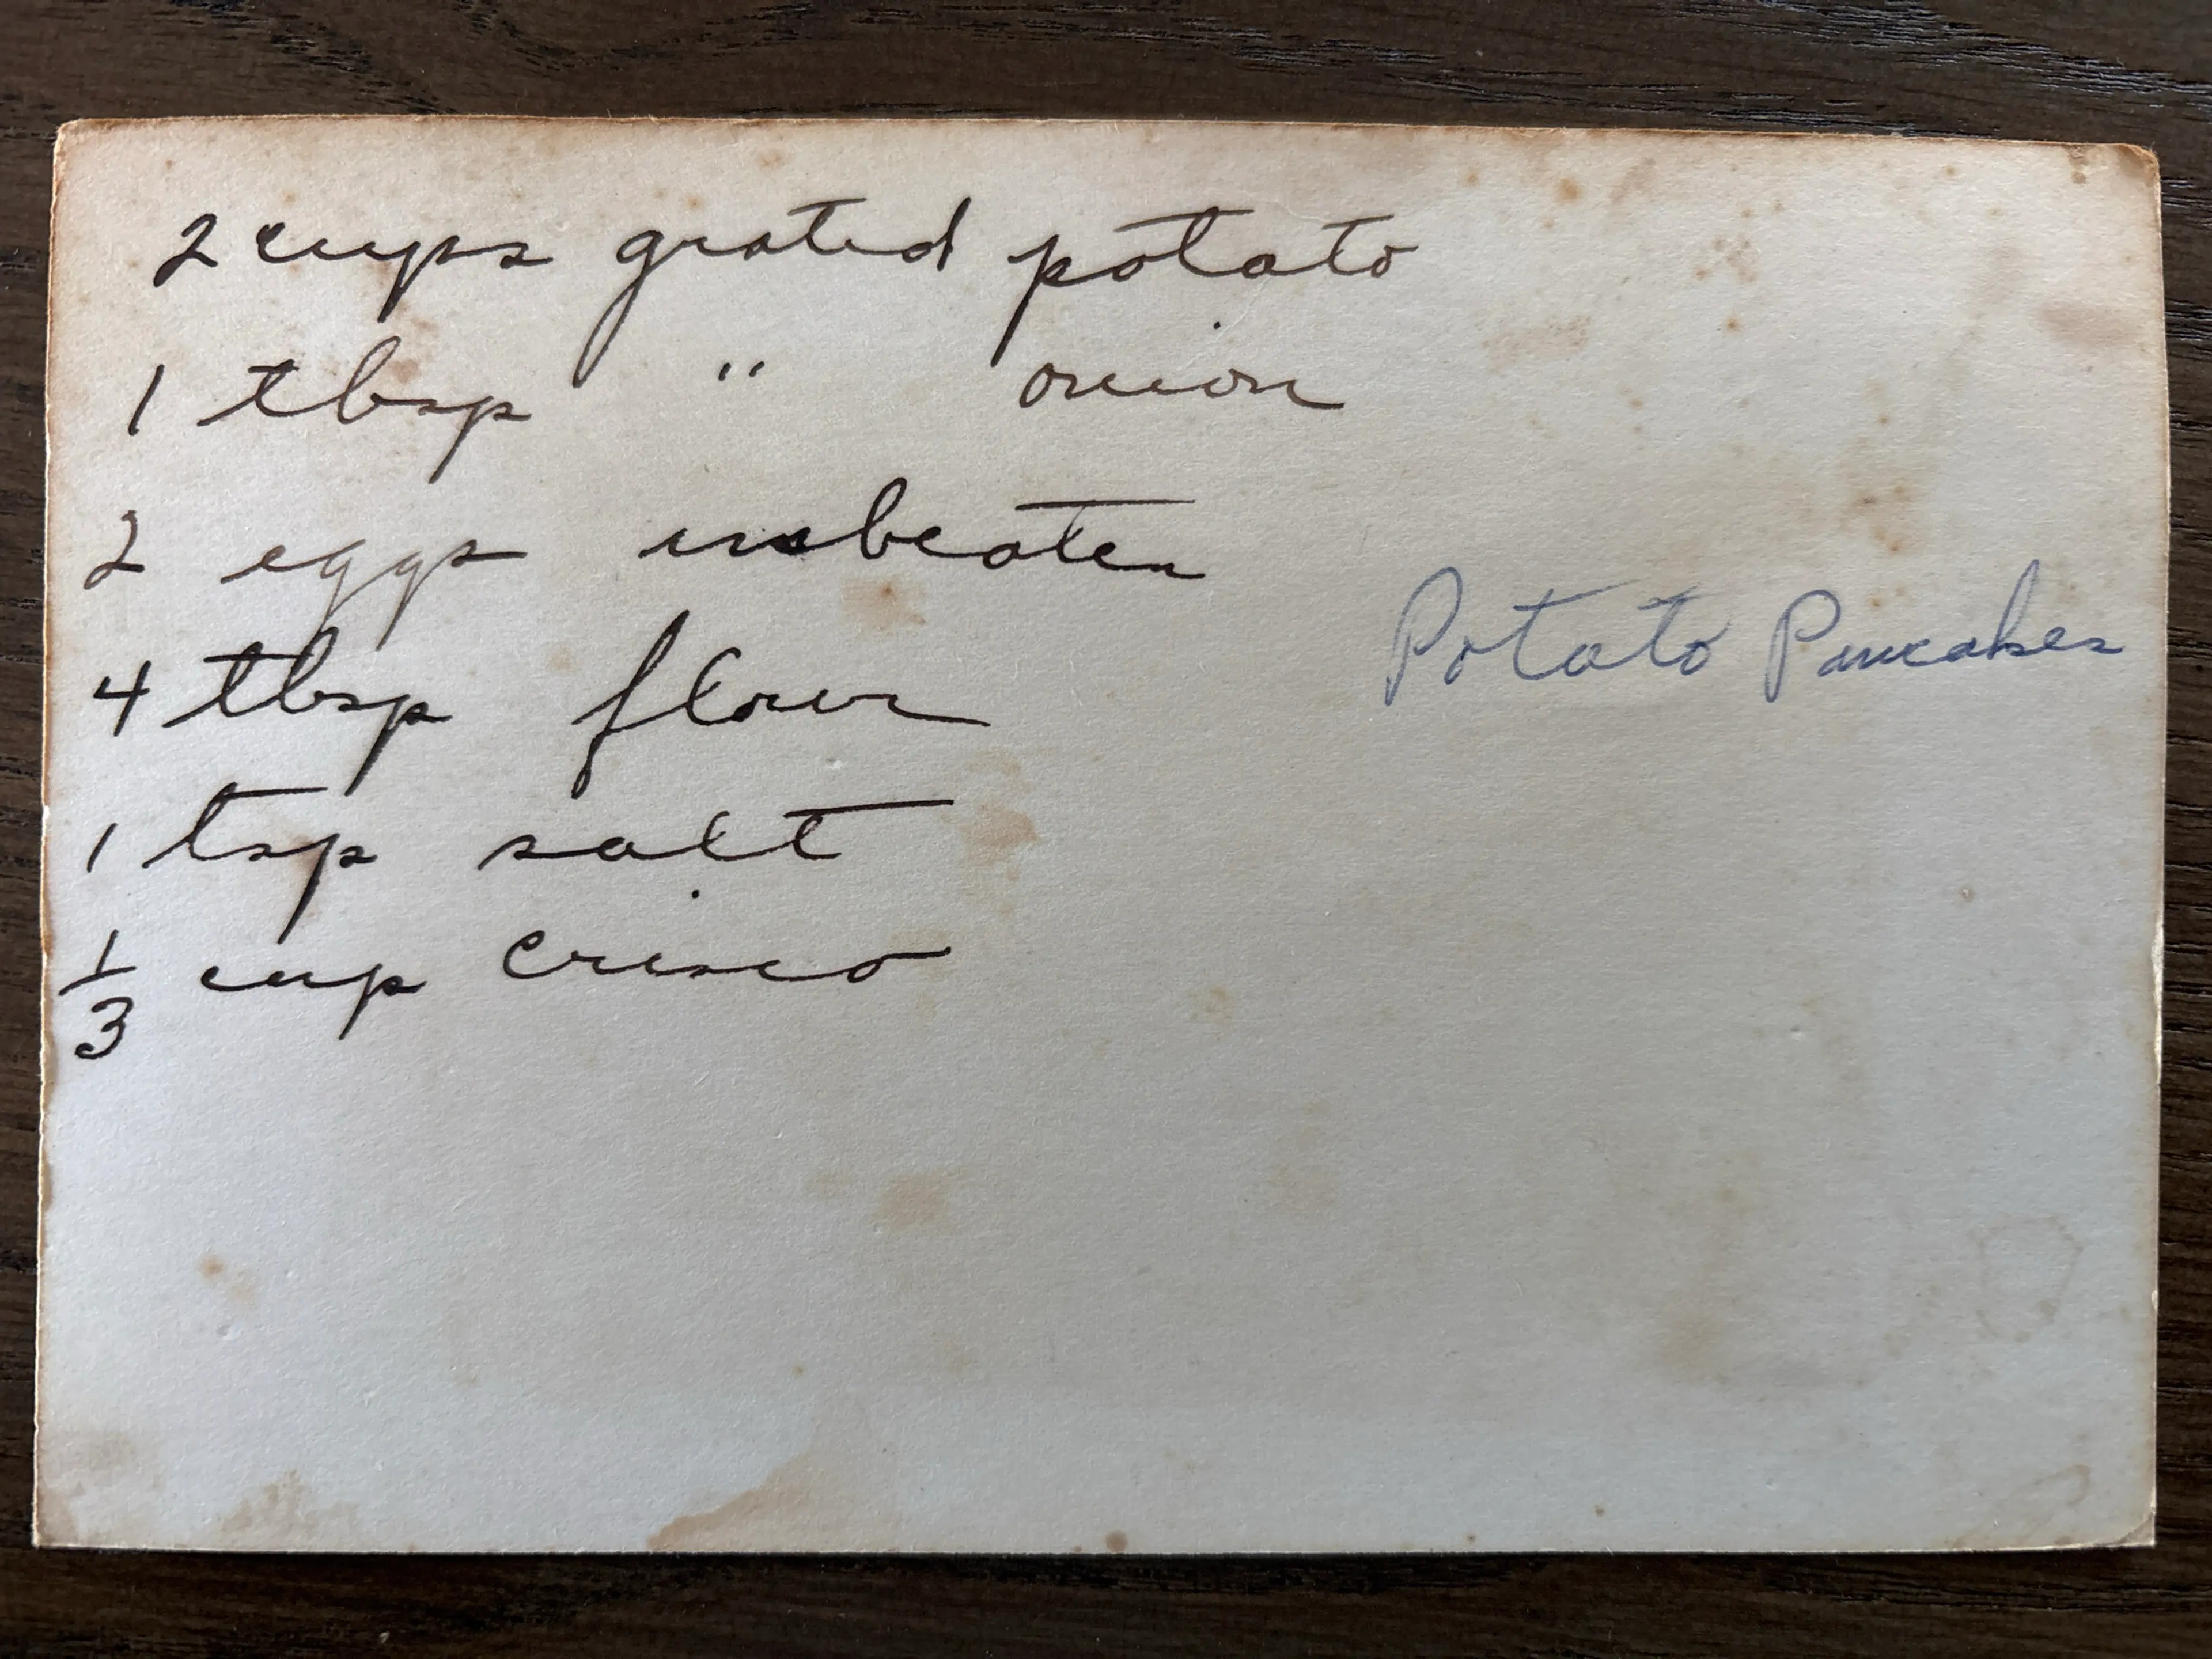 2 cups grated potato
1 tbsp " onion
2 eggs unbeaten
4 tbsp flour
1 tsp salt
1/3 cup crisco
Potato Pancakes